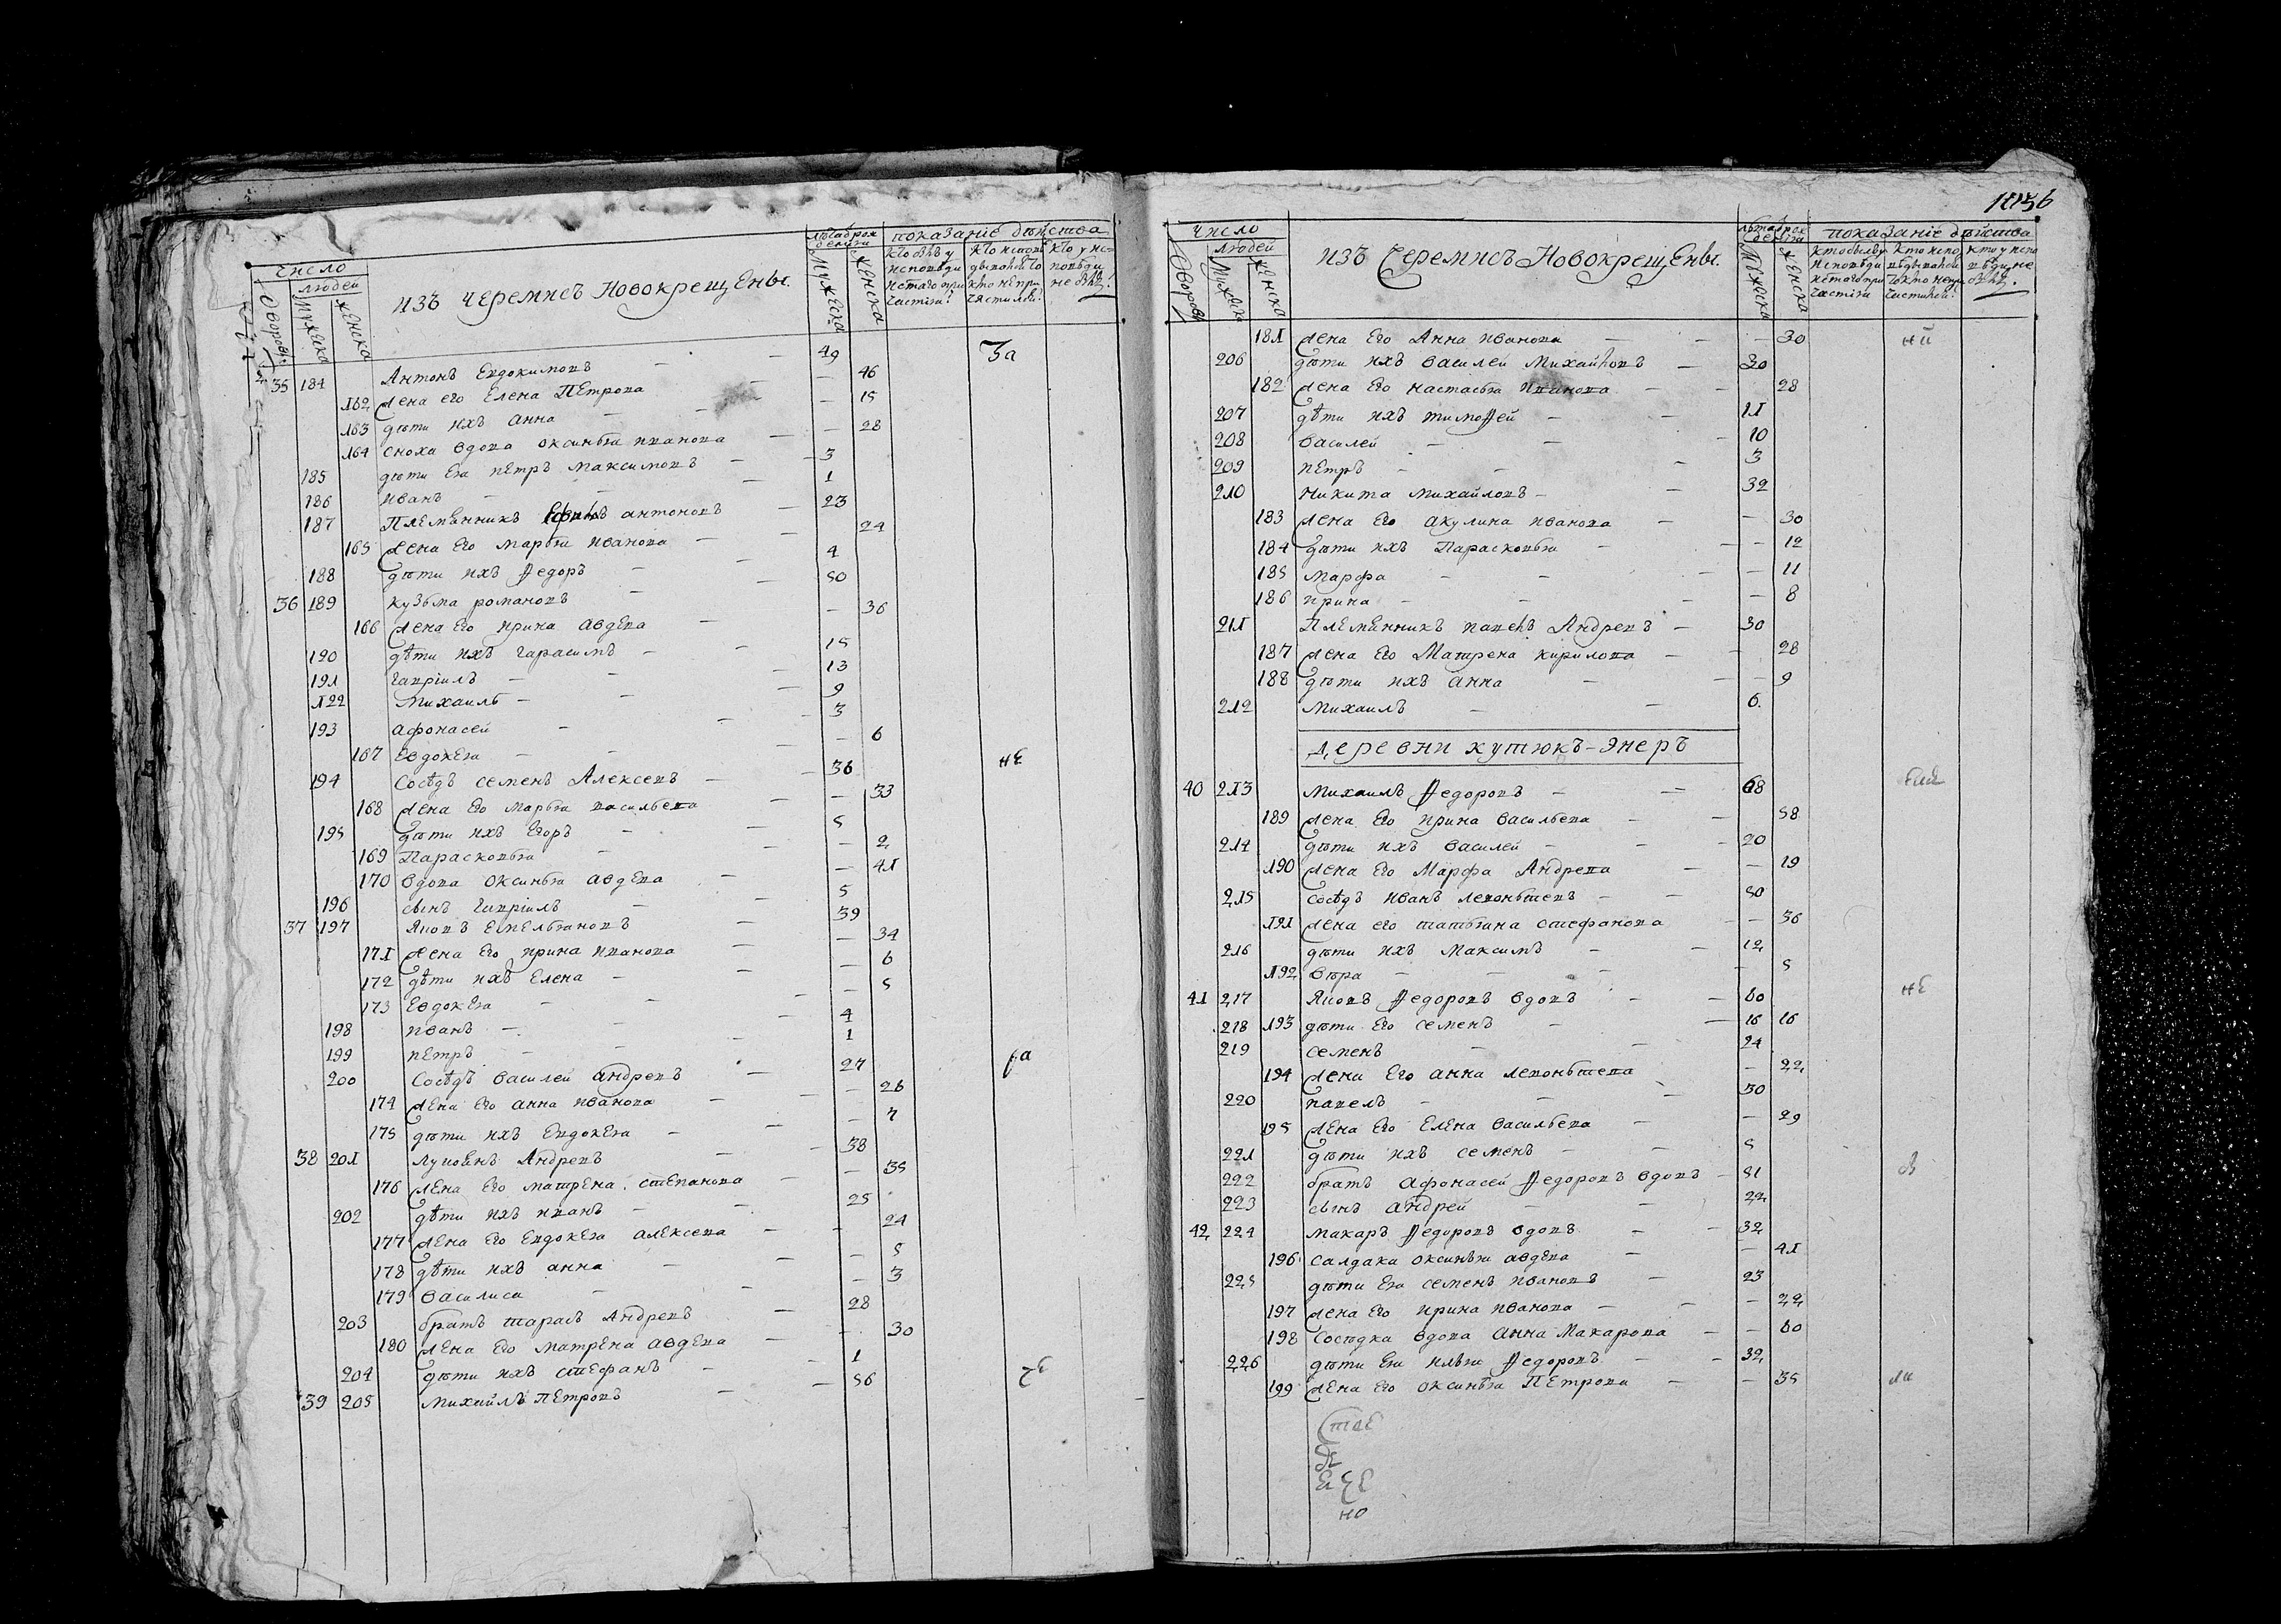 число
людей
дворовъ
мужеска
женска
изъ черемисъ Новокрещены.
лѣта
мужеска
женска
показаніе дѣйства
35 184 Антонъ Евдокимовъ — 49
За
162 жена его Елена Петрова — 46
163 дѣти ихъ Анна — 15
164 сноха вдова Оксинья Иванова — 28
185 дѣти ея Петръ Максимовъ — 3
186 Иванъ — 1
187 Племянникъ антоновъ — 23
165 жена его Марья Иванова — 24
188 дѣти ихъ Ѳедоръ — 4
36 189 Кузьма Романовъ — 50
166 жена его Ирина Авдева — 36
190 дѣти ихъ Гарасимъ — 15
191 Гавріилъ — 13
192 Михаилъ — 9
193 Афонасей — 3
167 Евдокея — 6
194 Сосѣдъ Семенъ Алексевъ — 36
не
168 жена его Марья Васильева — 33
195 дѣти ихъ Егоръ — 5
169 Парасковья — 2
170 вдова Оксинья Авдева — 41
196 сынъ Гавріилъ — 5
37 197 Яковъ Емельяновъ — 39
171 жена его Ирина Иванова — 34
172 дѣти ихъ Елена — 6
173 Евдокея — 5
198 Иванъ — 4
199 Петръ — 1
200 Сосѣдъ Василей Андревъ — 27
ра
174 жена его Анна Иванова — 26
175 дѣти ихъ Евдокея — 7
38 201 Лукоянъ Андревъ — 38
176 жена его Матрена Степанова — 35
202 дѣти ихъ Иванъ — 25
177 жена его Евдокея Алексева — 24
178 дѣти ихъ Анна — 5
179 Василиса — 3
203 братъ Тарасъ Андревъ — 28
180 жена его Матрена Авдева — 30
204 дѣти ихъ Стефанъ — 1
39 205 Михайлъ Петровъ — 56
число
людей
дворовъ
мужеска
женска
изъ Черемисъ Новокрещены.
мужеска
женска
показаніе дѣйства
181 жена его Анна Иванова — 30
206 дѣти ихъ Василей Михайловъ — 30
182 жена его Настасья Иванова — 28
207 дѣти ихъ Тимоѳей — 11
208 Василей — 10
209 Петръ — 3
210 Никита Михайловъ — 32
183 жена его Акулина Иванова — 30
184 дѣти ихъ Парасковья — 12
185 Марфа — 11
186 Ирина — 8
211 Племянникъ Павелъ Андревъ — 30
187 жена его Матрена Кирилова — 28
188 дѣти ихъ Анна — 9
212 Михаилъ — 6.
Деревни кутюкъ-энеръ
40 213 Михаилъ Ѳедоровъ — 68
189 жена его Ирина Васильева — 58
214 дѣти ихъ Василей — 20
190 жена его Марфа Андрева — 19
215 Сосѣдъ Иванъ Леоньтевъ — 50
191 жена его Татьяна Стефанова — 36
216 дѣти ихъ Максимъ — 12
192 Вѣра — 5
41 217 Яковъ Ѳедоровъ вдовъ — 60
не
218 193 дѣти его Семенъ — 16 16
219 Семенъ — 24
194 жена его Анна Леоньтева — 22
220 Павелъ — 30
195 жена его Елена Васильева — 29
221 дѣти ихъ Семенъ — 5
222 братъ Афонасей Ѳедоровъ вдовъ — 51
223 сынъ Андрей — 22
42 224 Макаръ Ѳедоровъ вдовъ — 32
196 Салдака Оксинья Авдева — 41
225 дѣти ея Семенъ Ивановъ — 23
197 жена его Ирина Иванова — 22
198 Сосѣдка вдова Анна Макарова — 60
226 дѣти ея Илья Ѳедоровъ — 32
199 жена его Оксинья Петрова — 35
но